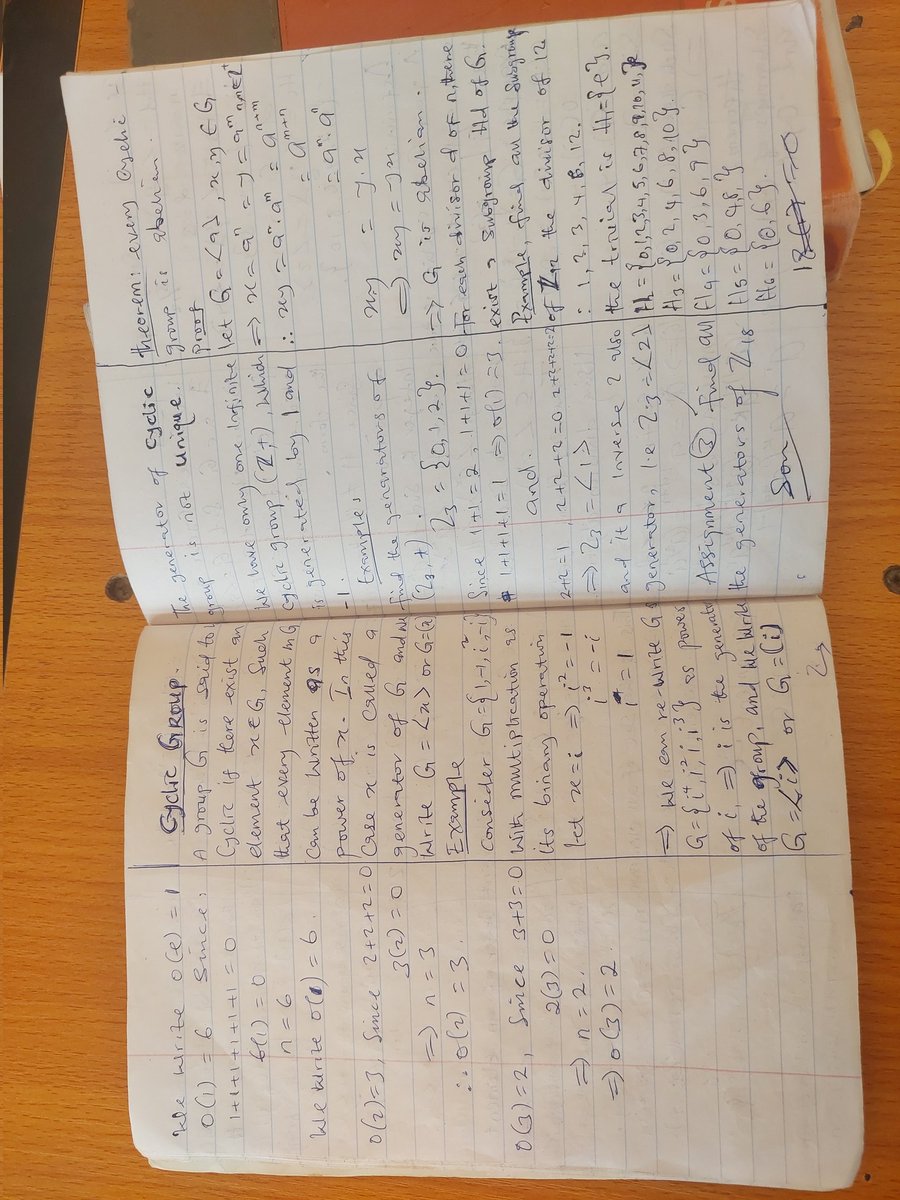 We write o(e) = 1
o(1) = 6 Since:
1+1+1+1+1+1 = 0
6(1) = 0
n = 6
We write o(1) = 6.
o(2)=3, Since 2+2+2=0
3(2) = 0
⇒ n = 3
∴ o(2) = 3.
o(3)=2, Since 3+3=0
2(3) = 0
⇒ n = 2.
⇒ o(3) = 2.
Cyclic Group.
A group G is said to
Cyclic if there exist an
element x∈G, Such
that every element in G
Can be written as a
power of x. In this
Case x is called a
generator of G and we
Write G = <x> or G=(x)
Example
Consider G={1,-1,i,-i}
With multiplication as
its binary operation
let x=i ⇒ i²=-1
i³=-i
i⁴=1
⇒ We can re-write G
G={i⁴,i²,i,i³} as power
of i, ⇒ i is the generator
of the group, and we write
G=<i> or G=(i)
The generator of Cyclic
group is not unique.
We have only one infinite
Cyclic group (Z,+), which
is generated by 1 and
-1.
Examples
find the generators of
(Z3,+).
Z3 = {0,1,2}.
Since 1+1=2, 1+1+1=0
1+1+1+1=1 ⇒ o(1)=3.
and.
2+2=1, 2+2+2=0 2+2+2+2=2
⇒ Z3 = <1>.
and it's inverse 2 also
generator, i.e Z3=<2>
Assignment (3) find all
the generators of Z18
theorem: every cyclic
group is abelian.
Proof
let G=<a>, x,y∈G
⇒ x=aⁿ = y=aᵐ n,m∈Z⁺
∴ xy=aⁿ·aᵐ = aⁿ⁺ᵐ
= aᵐ⁺ⁿ
= aᵐ·aⁿ
xy = y·x
⇒ xy=yx
⇒ G is abelian.
for each divisor d of n, there
exist a Subgroup Hd of G.
Example, find all the Subgroup
of Z12 the divisor of 12
: 1, 2, 3, 4, 6, 12.
the trivial is H1={e}.
H2={0,1,2,3,4,5,6,7,8,9,10,11,}
H3={0,2,4,6,8,10}.
H4={0,3,6,9}
H5={0,4,8,}
H6={0,6}.